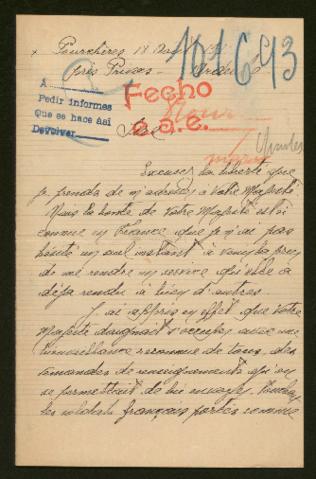 Pourchères 18 
101643
près Privas - Ardèche
A
Pedir informes
Que se hace así
Devolver
Fecho
e.o.e.
Sire
Excusez la liberté que
je prends de m'adresser à votre Majesté
Mais la bonté de Votre Majesté est si
connue en France que je n'ai pas
hésité un seul instant à
de me rendre un service qu'elle a
déjà rendu à bien d'autres
J'ai appris en effet que Votre
Majesté daignait s'occuper avec une
bienveillance reconnue de tous, des
demandes de renseignements qu'on
se permettait de lui envoyer,
les soldats français portés comme